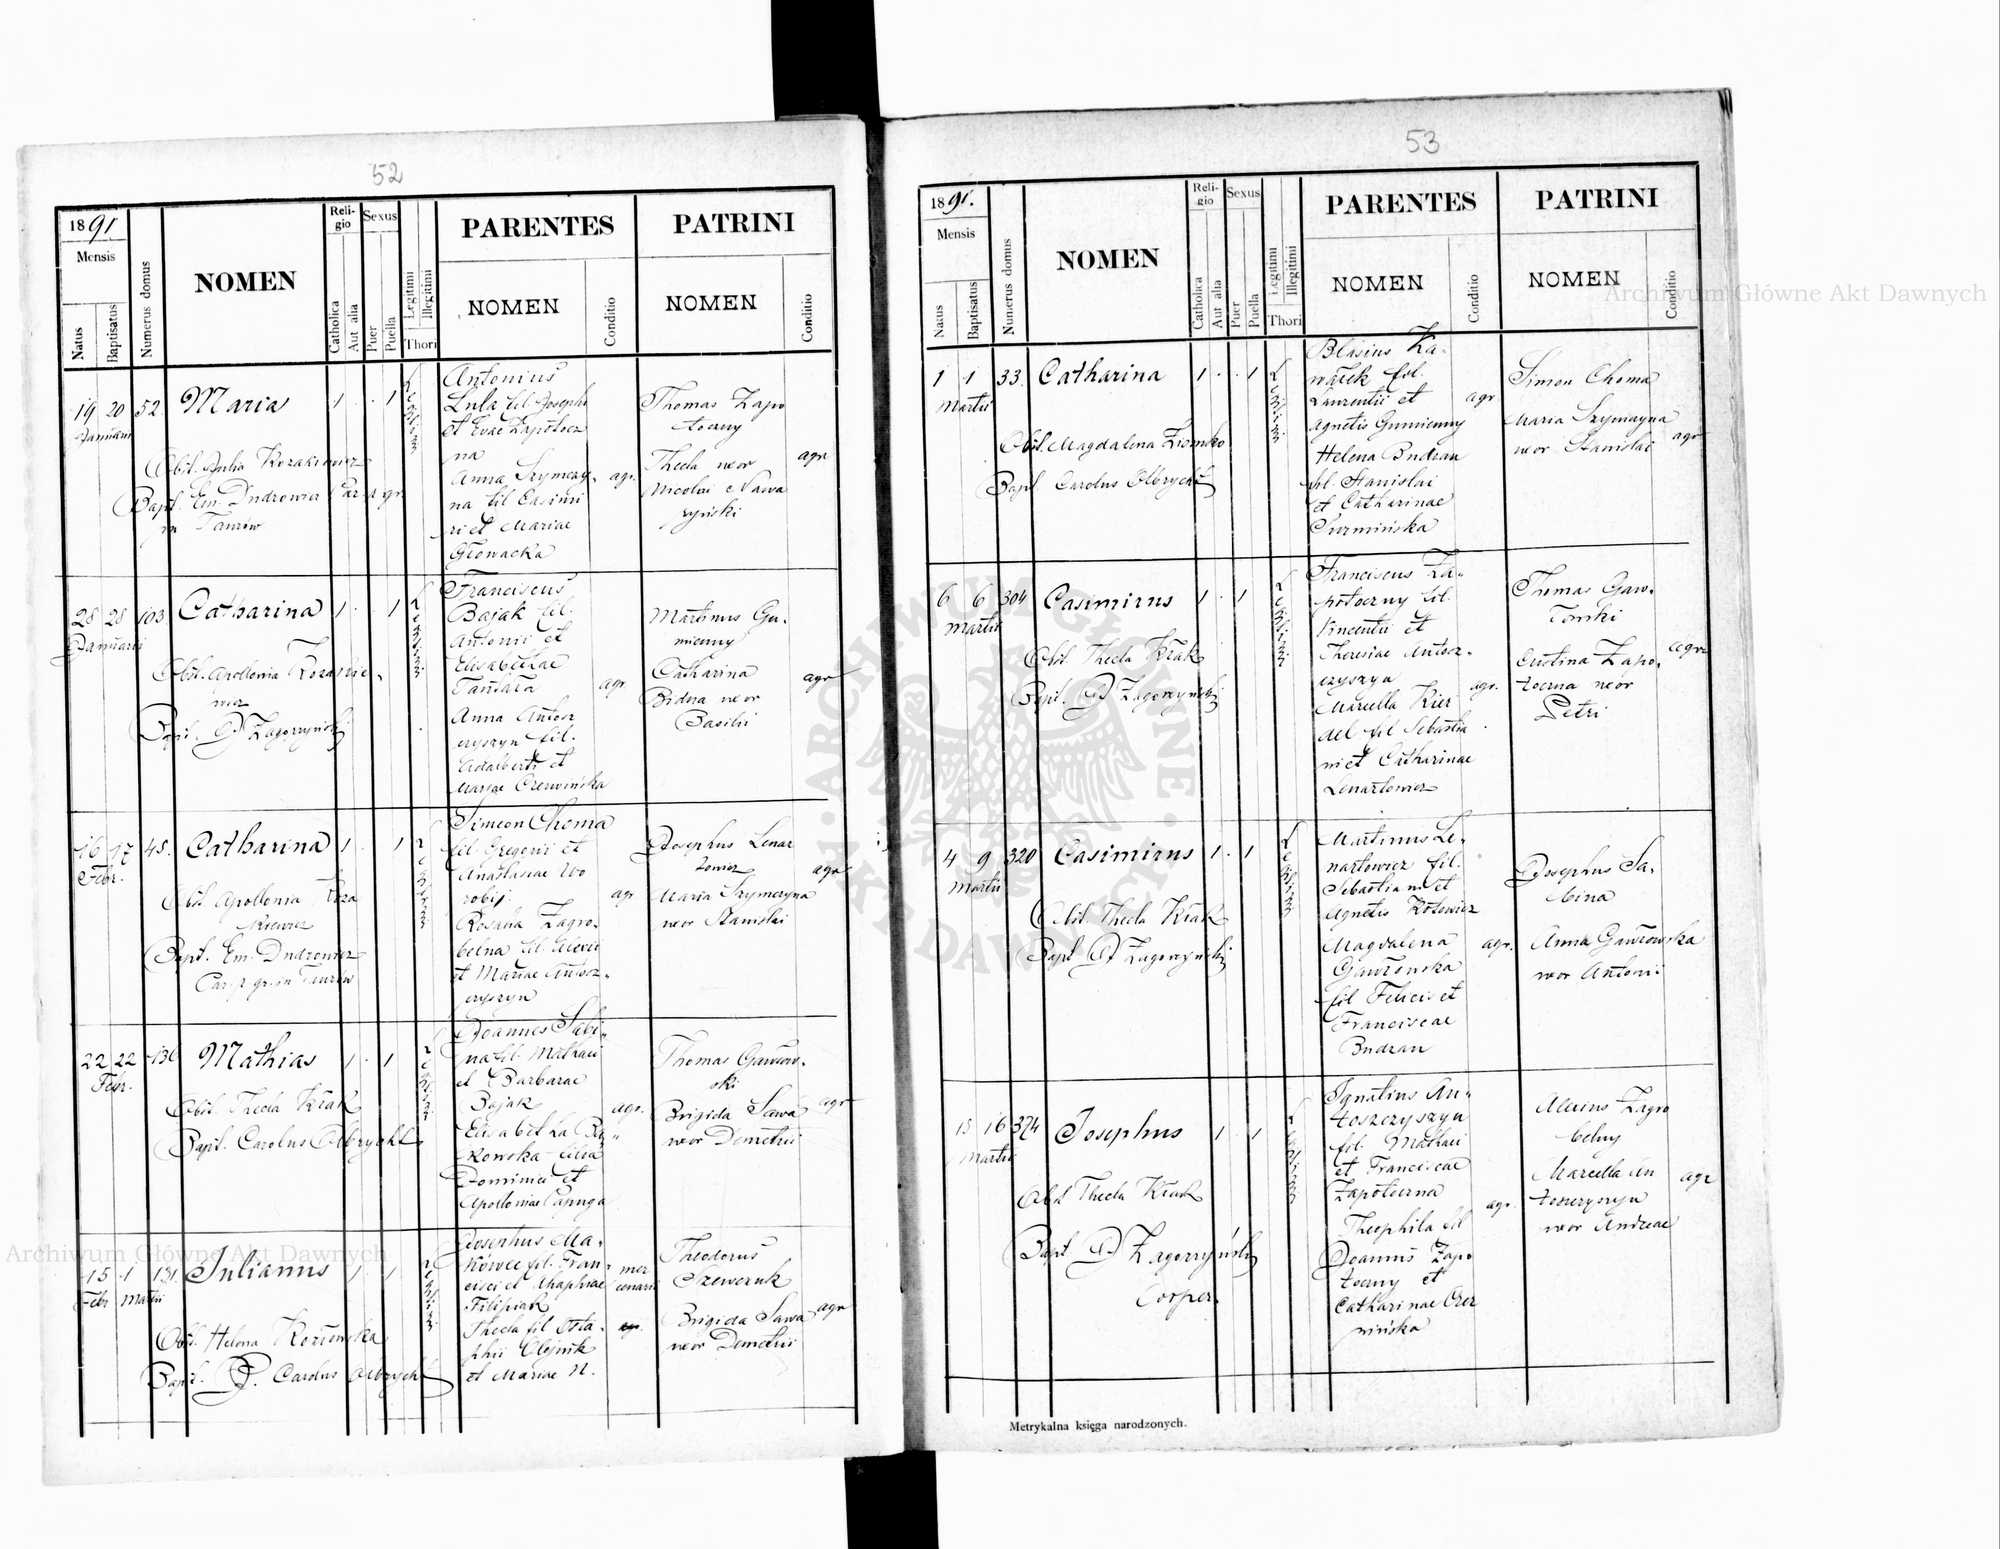 52
1891
Mensis
Natus
Baptisatus
Numerus domus
NOMEN
Religio
Catholica
Aut alia
Sexus
Puer
Puella
Legitimi
Illegitimi
Thori
PARENTES
NOMEN
Conditio
PATRINI
NOMEN
Conditio
19 20 52 Maria 1 . . 1
Januarii
Obst. Julia Kozakiewicz
Bapt. Em. Dudrowicz Car. p gr.
in Taurów
Antonius
Lula fil. Josephi
et Evae Zapotocz
na
Anna Szymczy-
na fil Casimi
ri et Mariae
Głowacka
agr.
Thomas Zapo
toczny
Thecla uxor
Nicolai Nawa
ryński
agr
28 28 103 Catharina 1 . . 1
Januarii
Obst. Apollonia Kozakie-
wicz
Bapt. Zagorzyński
Franciscus
Bajak fil.
Antonii et
Elisabethae
Tantała
Anna Antosz
czyszyn fil.
Adalberti et
Maryae Czerwińska
agr
Martinus Gu-
mienny
Catharina
Bidna uxor
Basilii
agr
16 17 45. Catharina 1 . . 1
Febr.
Obst Apollonia Koza
kiewicz
Bapt. Em. Dudrowicz
Car. p gr. in Taurów
Simeon Choma
fil Gregorii et
Anastasiae Wo
robij
Rosalia Zagro-
belna fil. Alexii
et Mariae Antosz-
czyszyn
agr
Josephus Lenar
towicz
Maria Szymczyna
uxor Stanislai
agr
22 22 136 Mathias 1 . 1
Febr.
Obst. Thecla Krak
Bapt. Carolus Olbrycht
Joannes Sabi-
na fil. Mathaei
et Barbarae
Bajak
Elisabetha Ra-
kowska filia
Dominici et
Apolloniae Capuga
agr.
Thomas Gawrow-
ski
Brigida Sawa
uxor Demetrii
agr
15 1 131. Julianus 1 . 1
Febr Martii
Obst. Helena Kozłowska
Bapt. Carolus Olbrycht
Josephus Ma-
kowce fil. Fran-
cisci et Agaphiae
Filipiak
Thecla fil Osta-
phii Olejnik
et Mariae N.
mer
cenarii
Theodorus
Szewczuk
Brigida Sawa
uxor Demetrii
agr
53
1891.
Mensis
Natus
Baptisatus
Numerus domus
NOMEN
Religio
Catholica
Aut alia
Sexus
Puer
Puella
Legitimi
Illegitimi
Thori
PARENTES
NOMEN
Conditio
PATRINI
NOMEN
Conditio
1 1 33. Catharina 1 . . 1
Martii
Obst. Magdalena Ziemko
Bapt. Carolus Olbrycht
Blasius Ka-
wałek fil.
Laurentii et
Agnetis Gumienny
Helena Budzan
fil. Stanislai
et Catharinae
Surmińska
agr
Simon Choma
Maria Szymczyna
uxor Stanislai
agr
6 6 304 Casimirus 1 . 1
Martii
Obst. Thecla Krak
Bapt. Zagorzyński
Franciscus Za-
potoczny fil.
Vincentii et
Theresiae Antosz-
czyszyn
Marcella Kier
del fil Sebastia
ni et Catharinae
Lenartowicz
agr.
Thomas Gaw-
roński
Cristina Zapo-
toczna uxor
Petri
agr
4 9 320 Casimirus 1 . 1
Martii
Obst. Thecla Krak
Bapt Zagorzyński
Martinus Le-
nartowicz fil.
Sebastiani et
Agnetis Kotowicz
Magdalena
Gawrowska
fil Felicis et
Franciscae
Budzan
agr.
Josephus Sa-
bina
Anna Gawrowska
uxor Antoni
15 16 374 Josephus 1 . 1
Martii
Obst Thecla Krak
Bapt Zagorzyński
Corper.
Ignatius An-
toszczyszyn
fil. Mathaei
et Franciscae
Zapotoczna
Theophila fil
Joannis Zapo
toczny et
Catharinae Czer
wińska
agr.
Alexius Zagro
belny
Marcella An
toszczyszyn
uxor Andreae
agr
Metrykalna księga narodzonych.
Archiwum Główne Akt Dawnych
Archiwum Główne Akt Dawnych
ARCHIWUM GŁÓWNE AKT DAWNYCH